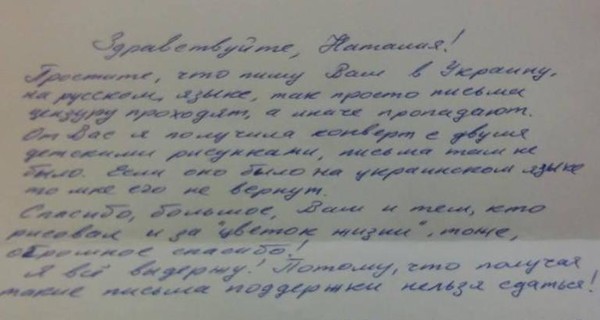 Здравствуйте, Наталия!
Простите, что пишу Вам в Украину,
на русском, языке, так просто письма
цензуру проходят, а иначе пропадают.
От Вас я получила конверт с двумя
детскими рисунками, письма там не
было. Если оно было на украинском языке
то мне его не вернут.
Спасибо, большое, Вам и тем, кто
рисовал и за "цветок жизни", тоже,
огромное спасибо!
Я всё выдержу! Потому, что получая
такие письма поддержки нельзя сдаться!